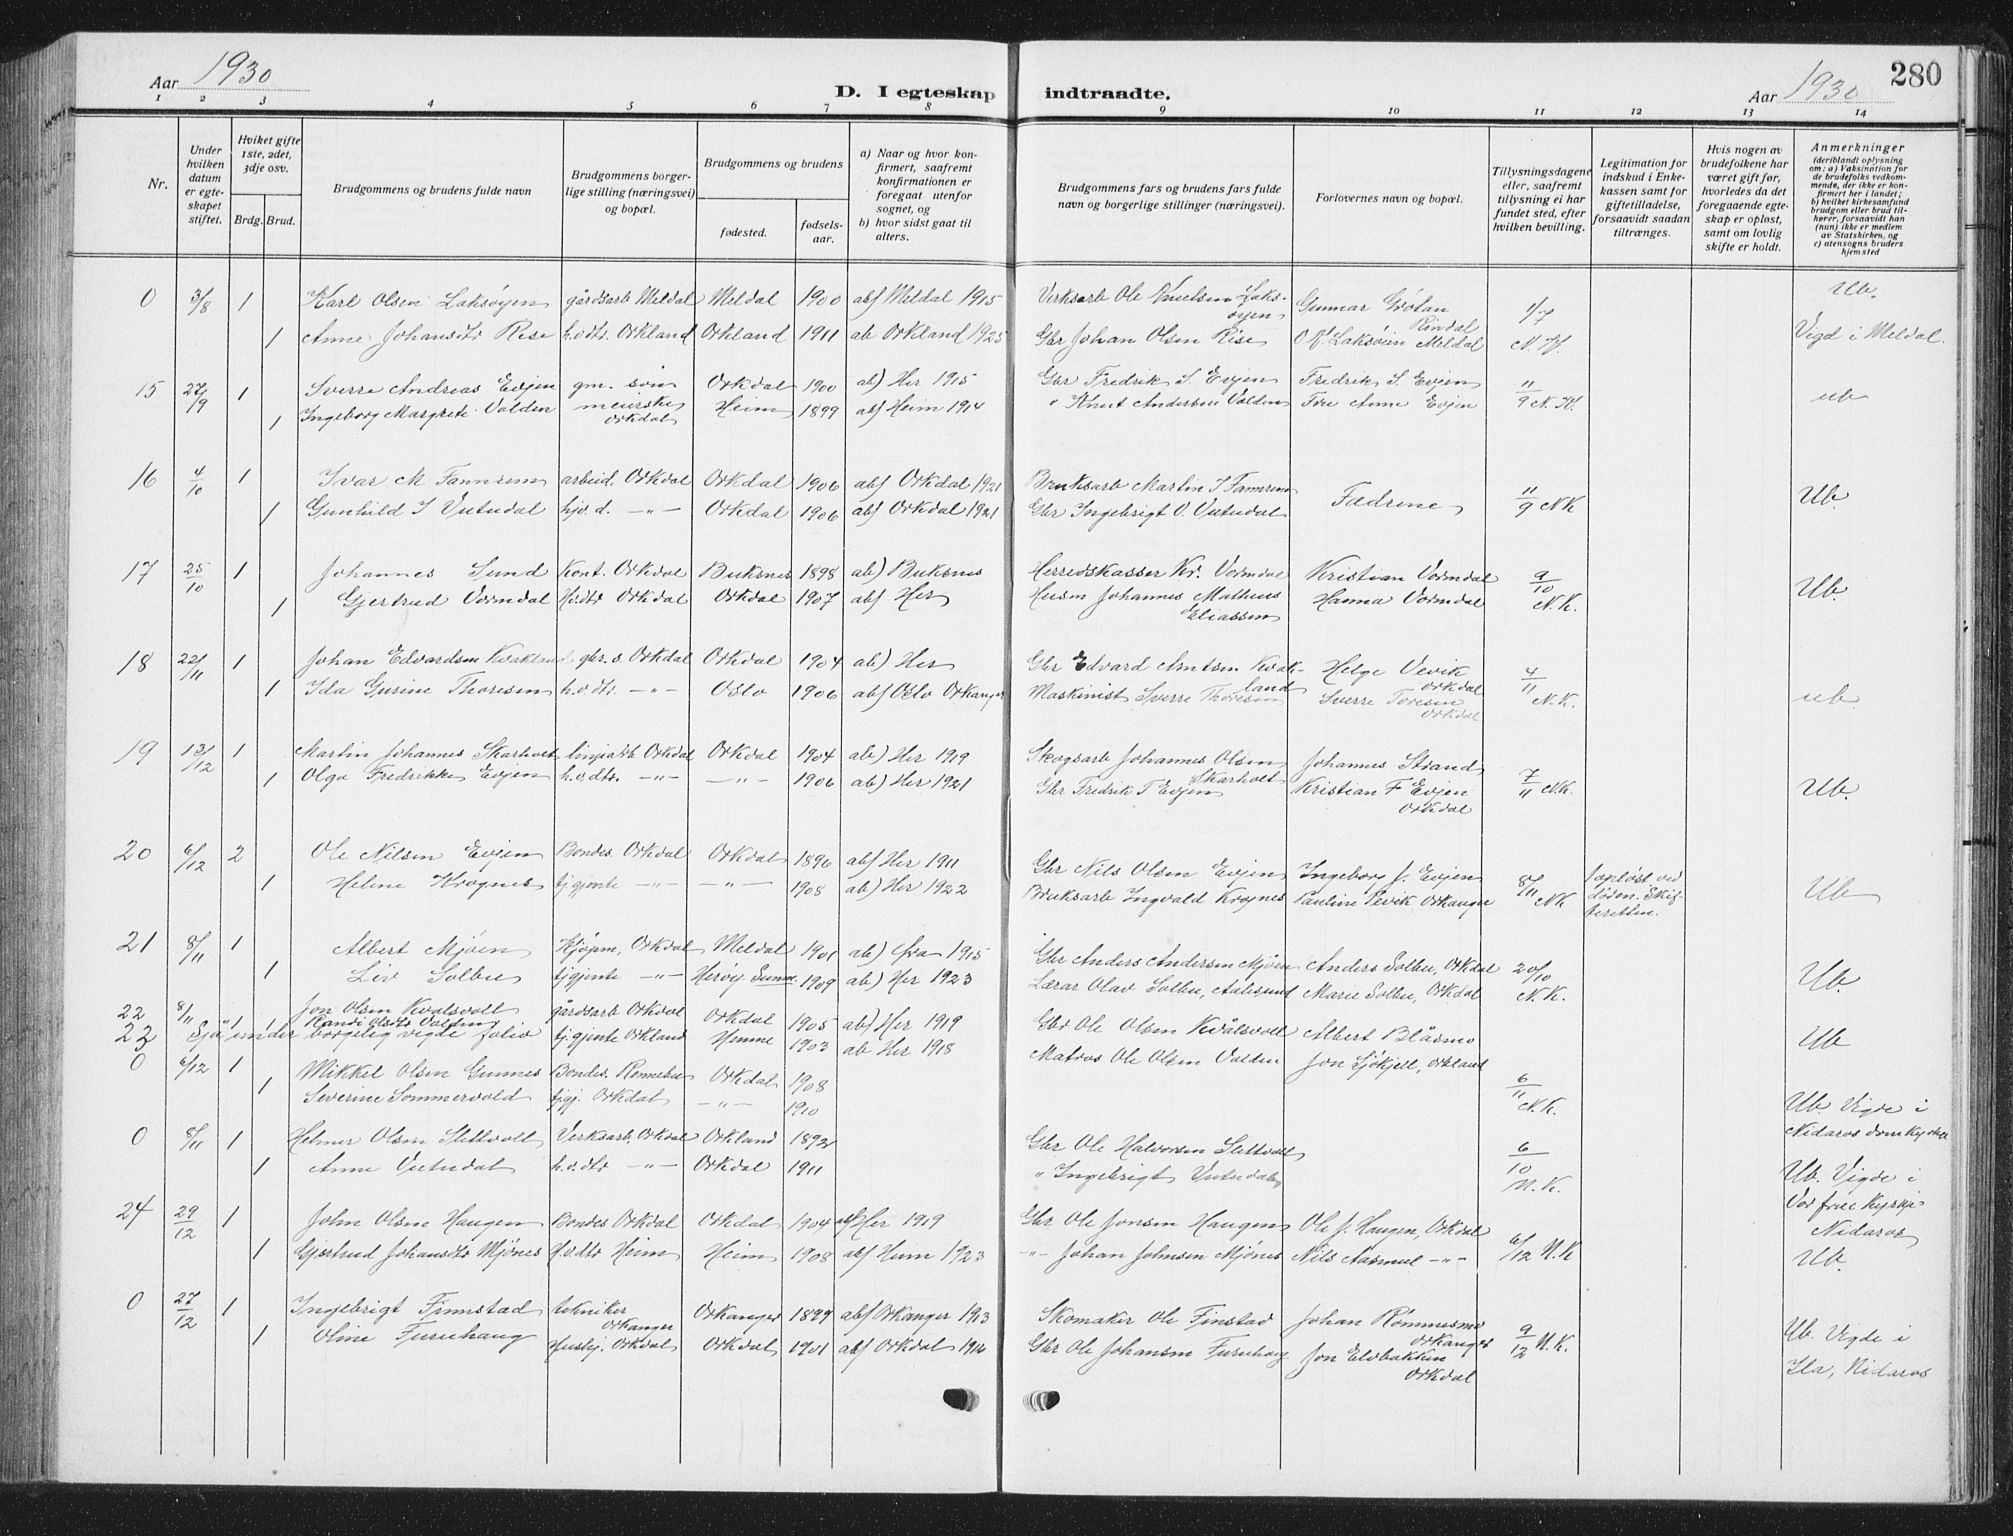 Aar 1930
D. I egteskap indtraadte.
Aar 1930
280
1 2 3 4 5 6 7 8 9 10 11 12 13 14
Nr.
Under hvilken datum er egteskapet stiftet.
Hviket gifte 1ste, 2det, 3dje osv.
Brdg. Brud.
Brudgommens og brudens fulde navn
Brudgommens borgerlige stilling (næringsvei) og bopæl.
Brudgommens og brudens
fødested. fødselsaar.
a) Naar og hvor konfirmert, saafremt konfirmationen er foregaat utenfor sognet, og
b) hvor sidst gaat til alters.
Brudgommens fars og brudens fars fulde navn og borgerlige stillinger (næringsvei).
Forlovernes navn og bopæl.
Tillysningsdagene eller, saafremt tillysning ei har fundet sted, efter hvilken bevilling.
Legitimation for indskud i Enkekassen samt for giftetilladelse, forsaavidt saadan tiltrænges.
Hvis nogen av brudefolkene har været gift før, hvorledes da det foregaaende egteskap er opløst, samt om lovlig skifte er holdt.
Anmerkninger (deriblandt oplysning om: a) Vaksination for de brudefolks vedkommende, der ikke er konfirmert her i landet; b) hvilket kirkesamfund brudgom eller brud tilhører, forsaavidt han (hun) ikke er medlem av Statskirken, og c) utensogns bruders hjemsted
0 3/8 1 Karl Olsen Laksøyen gårdsarb Meldal Meldal 1900 ab) Meldal 1915 Verksarb Ole Knutsen Laksøyen Gunnar Grötan Rindal 1/7 Ub.
1 Anne Johansdtr Rise h.v.dtr. Orkland Orkland 1911 ab Orkland 1925 Gbr Johan Olsen Rise O. K. Laksöien Meldal N. K. Vigd i Meldal.
15 27/19 1 Sverre Andreas Evjen gm. søn Orkdal 1900 ab) Her 1915 Gbr Fredrik S. Evjen Fredrik S. Evjen 11/9 N. K. ub
1 Ingeborg Margrete Valden meierske Orkdal Heim 1899 ab) Heim 1914 " Knut Andersen Valden Fru Anne Evjen
16 4/10 1 Ivar M Fannrem arbeid. Orkdal Orkdal 1906 ab) Orkdal 1921 Bruksarb Martin I Fannrem Fædrene 11/9 NK Ub.
1 Gunhild I Vutudal hjv. d. -"- Orkdal 1906 ab) Orkdal 1921 Gbr Ingebrigt O. Vutudal
17 25/10 1 Johannes Sund Kont. Orkdal Buksnes 1898 ab) Buksnes Herredskasser Kr. Vormdal Kristian Vormdal 9/10 N.K. Ub.
1 Gjertrud Vormdal H.v.dtr Orkdal Orkdal 1907 ab) Her Husm Johannes Matheus Eliassen Hanna Vormdal
18 22/11 1 Johan Edvardsen Kvakland gbr. s. Orkdal Orkdal 1904 ab) Her Gbr Edvard Arntsen Kvakland Helge Vevik Orkdal 4/11 N.K. ub.
1 Ida Gurine Thoresen h.v.dtr. -"- Oslo 1906 ab) Oslo Orkanger Maskinist Sverre Thoresen Sverre Toresen Orkdal
19 13/12 1 Martin Johannes Skarholt linjearb Orkdal Orkdal 1904 ab) Her 1919 Skogsarb Johannes Olsen Skarholt Johannes Strand 7/11 N.K. Ub.
1 Olga Fredrikke Evjen h.v.dtr. -"- -"- 1906 ab) Her 1921 Gbr Fredrik T Evjen Kristian F Evjen Orkdal
20 6/12 2 Ole Nilsen Evjen Bondes. Orkdal Orkdal 1896 ab) Her 1911 Gbr Nils Olsen Evjen Ingeborg J. Evjen 8/11 NK opløst ved døden. Skifteretten. Ub
1 Helene Krognes tj.gjente -"- -"- 1908 ab) Her 1922 Bruksarb Ingvald Krognes Pauline Vevik Orkanger
21 8/11 1 Albert Mjøen Kjøpm, Orkdal Meldal 1901 ab) 1915 Gbr Anders Andersen Mjøen Anders Solbu, Orkdal 20/10 N. K. Ub.
1 Liv Solbu tjgjente -"- Herøy Sunm. 1909 ab) Her 1923 Lærar Olav Solbu, Aalesund Marie Solbu, Orkdal
22 8/11 1 Jon Olsen Kvalsvoll gårdsarb Orkdal Orkdal 1905 ab) Her 1919 Gbr Ole Olsen Kvålsvoll Albert Blåsmo Ub
1 Randi Olsdtr Valden tj.gjente Orkland Hemne 1903 ab Her 1918 Matros Ole Olsen Valden Jon Sjøkjell, Orkland
23 Sjå under borgelig vigde folio
0 6/12 1 Mikkel Olsen Gunnes Bondes. Rennebu Orkdal 1908 6/11 N.K. Ub Vigde i
1 Severine Sommervold tjgj. Orkdal -"- 1910 Nidaros domkyrkje
0 8/11 1 Helmer Olsen Slettvoll Verksarb. Orkdal Orkland 1892 Gbr Ole Halvorsen Slettvoll 6/10 N.K. Ub. Vigde i
1 Anne Vutudal h.v.dtr -"- Orkdal 1911 " Ingebrigt Vutudal Vor frue Kyrkje Nidaros
24 29/12 1 John Olsen Haugen Bondes Orkdal Orkdal 1904 ab) Her 1919 Gbr Ole Jonsen Haugen Ole J. Haugen, Orkdal 6/12 N.K Ub.
1 Gjertrud Johansdtr Mjønes H.v.dtr Heim Heim 1908 ab) Heim 1923 -"- Johan Johnsen Mjønes Nils Aasmul -"-
0 27/12 1 Ingebrigt Finnstad tekniker Orkanger Orkanger 1899 ab) Orkanger 1913 Skomaker Ole Finstad Johan Rømmesmo Orkanger 9/12 N.K. Ub. Vigde i
1 Oline Furuhaug Hushj. Orkdal Orkdal 1901 ab) Orkdal 1916 Gbr Ole Johansen Furuhaug Jon Elvbakken Orkdal Ila, Nidaros